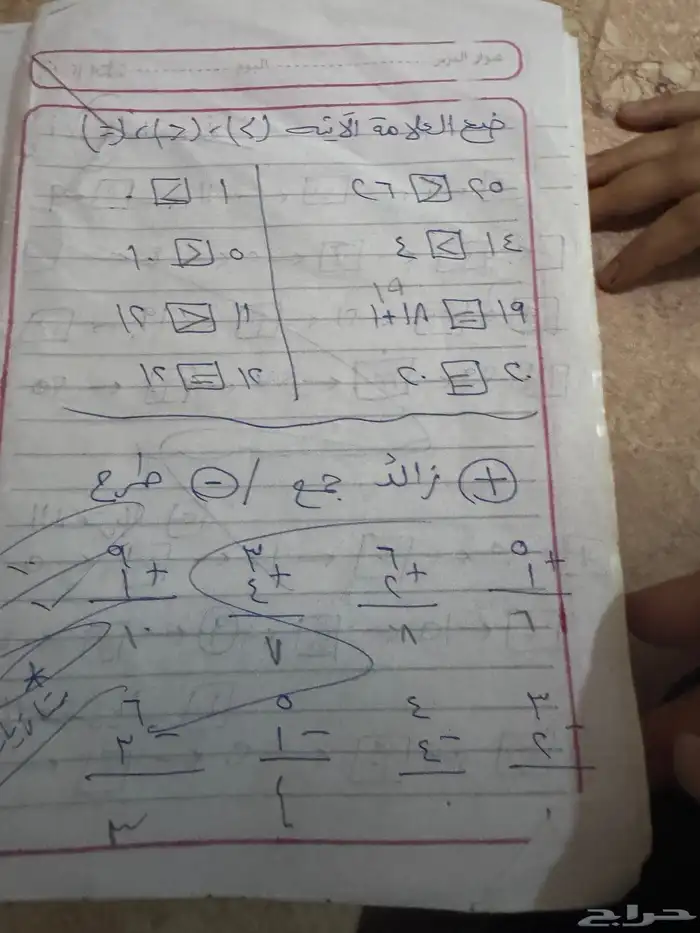 عنوان الدرس اليوم
ضع العلامة الآتيه (>)،(<)،(=)
٢٥ < ٢٦ ١ > ٠
١٤ > ٤ ٥ < ١٠
١٩
١٩ = ١٨+١ ١١ < ١٢
٢٠ = ٢٠ ١٢ = ١٢
+ زائد جمع / - طرح
٥ ٦ ٣ ٩
+ ١ + ٢ + ٤ + ١
٦ ٨ ٧ ١٠
٣ ٤ ٥ ٦
- ٢ - ٤ - ١ - ٣
١ ٠ ٤ ٣
حراج